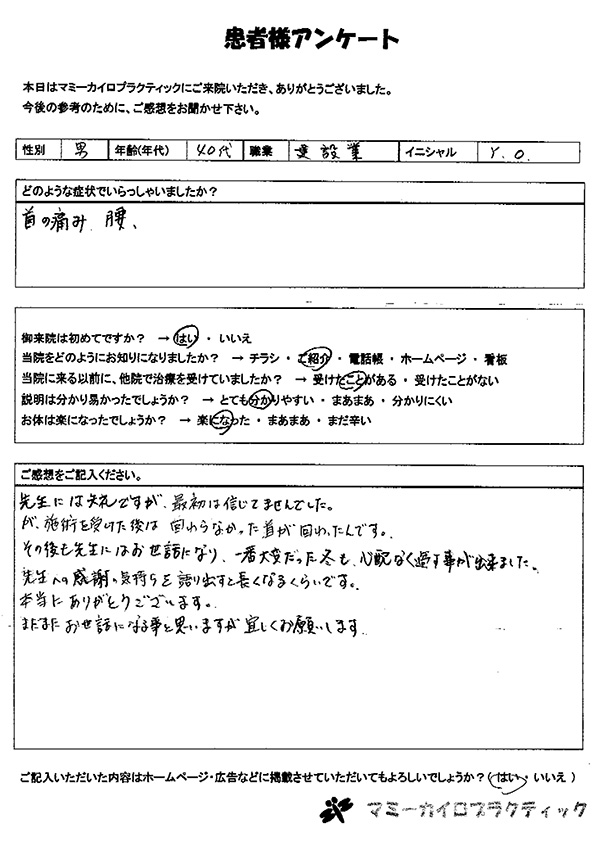 患者様アンケート
本日はマミーカイロプラクティックにご来院いただき、ありがとうございました。
今後の参考のために、ご感想をお聞かせ下さい。
性別 男 年齢(年代) 40代 職業 建設業 イニシャル Y.O.
どのような症状でいらっしゃいましたか？
首の痛み、腰、
御来院は初めてですか？ → はい ・ いいえ
当院をどのようにお知りになりましたか？ → チラシ ・ ご紹介 ・ 電話帳 ・ ホームページ ・ 看板
当院に来る以前に、他院で治療を受けていましたか？ → 受けたことがある ・ 受けたことがない
説明は分かり易かったでしょうか？ → とても分かりやすい ・ まあまあ ・ 分かりにくい
お体は楽になったでしょうか？ → 楽になった ・ まあまあ ・ まだ辛い
ご感想をご記入ください。
先生には失礼ですが、最初は信じてませんでした。
が、施術を受けた後は 回わらなかった首が回わったんです。
その後も先生にはお世話になり、一番大変だった冬も、心配なく過す事が出来ました。
先生への感謝の気持ちを語り出すと長くなるくらいです。
本当にありがとうございます。
まだまだお世話になる事と思いますが宜しくお願いします。
ご記入いただいた内容はホームページ・広告などに掲載させていただいてもよろしいでしょうか？(はい・いいえ)
マミーカイロプラクティック